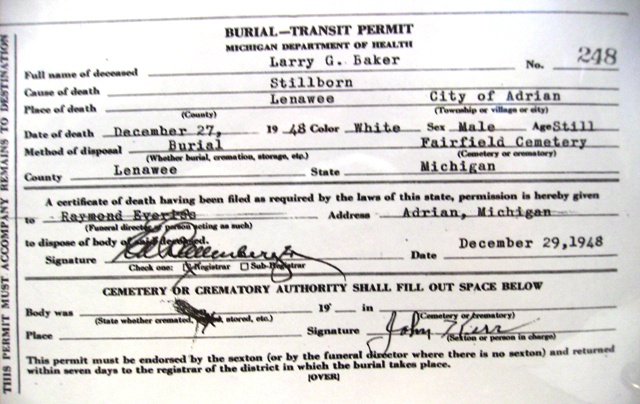 BURIAL—TRANSIT PERMIT
MICHIGAN DEPARTMENT OF HEALTH
Full name of deceased Larry G. Baker No. 248
Cause of death Stillborn
Place of death Lenawee City of Adrian
(County) (Township or village or city)
Date of death December 27, 19 48 Color White Sex Male Age Still
Method of disposal Burial Fairfield Cemetery
(Whether burial, cremation, storage, etc.) (Cemetery or crematory)
County Lenawee State Michigan
A certificate of death having been filed as required by the laws of this state, permission is hereby given
to Raymond Address Adrian, Michigan
(Funeral director or person acting as such)
to dispose of body of said deceased.
Signature Date December 29, 1948
Check one: Registrar Sub-Registrar
CEMETERY OR CREMATORY AUTHORITY SHALL FILL OUT SPACE BELOW
Body was 19 in
(State whether cremated, stored, etc.) (Cemetery or crematory)
Place Signature John Kerr
(Sexton or person in charge)
This permit must be endorsed by the sexton (or by the funeral director where there is no sexton) and returned
within seven days to the registrar of the district in which the burial takes place.
[OVER]
THIS PERMIT MUST ACCOMPANY REMAINS TO DESTINATION